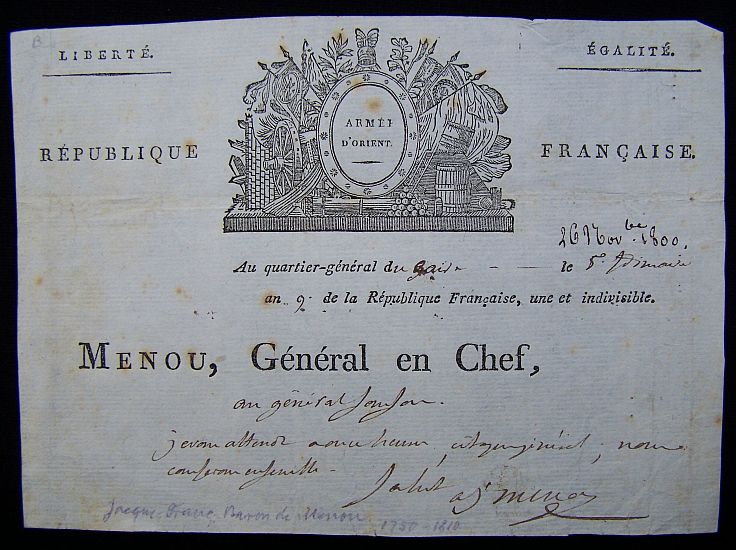 B
LIBERTÉ. ÉGALITÉ.
ARMÉE
D'ORIENT.
RÉPUBLIQUE FRANÇAISE.
26 Nov.bre 1800.
Au quartier-général du Caire le 5. frimaire
an 9. de la République Française, une et indivisible.
MENOU, Général en Chef,
au général
je vous attends a onze heures, citoyen général, nous
causerons ensemble.
Salut
menou
Baron de Menou
1750-1810